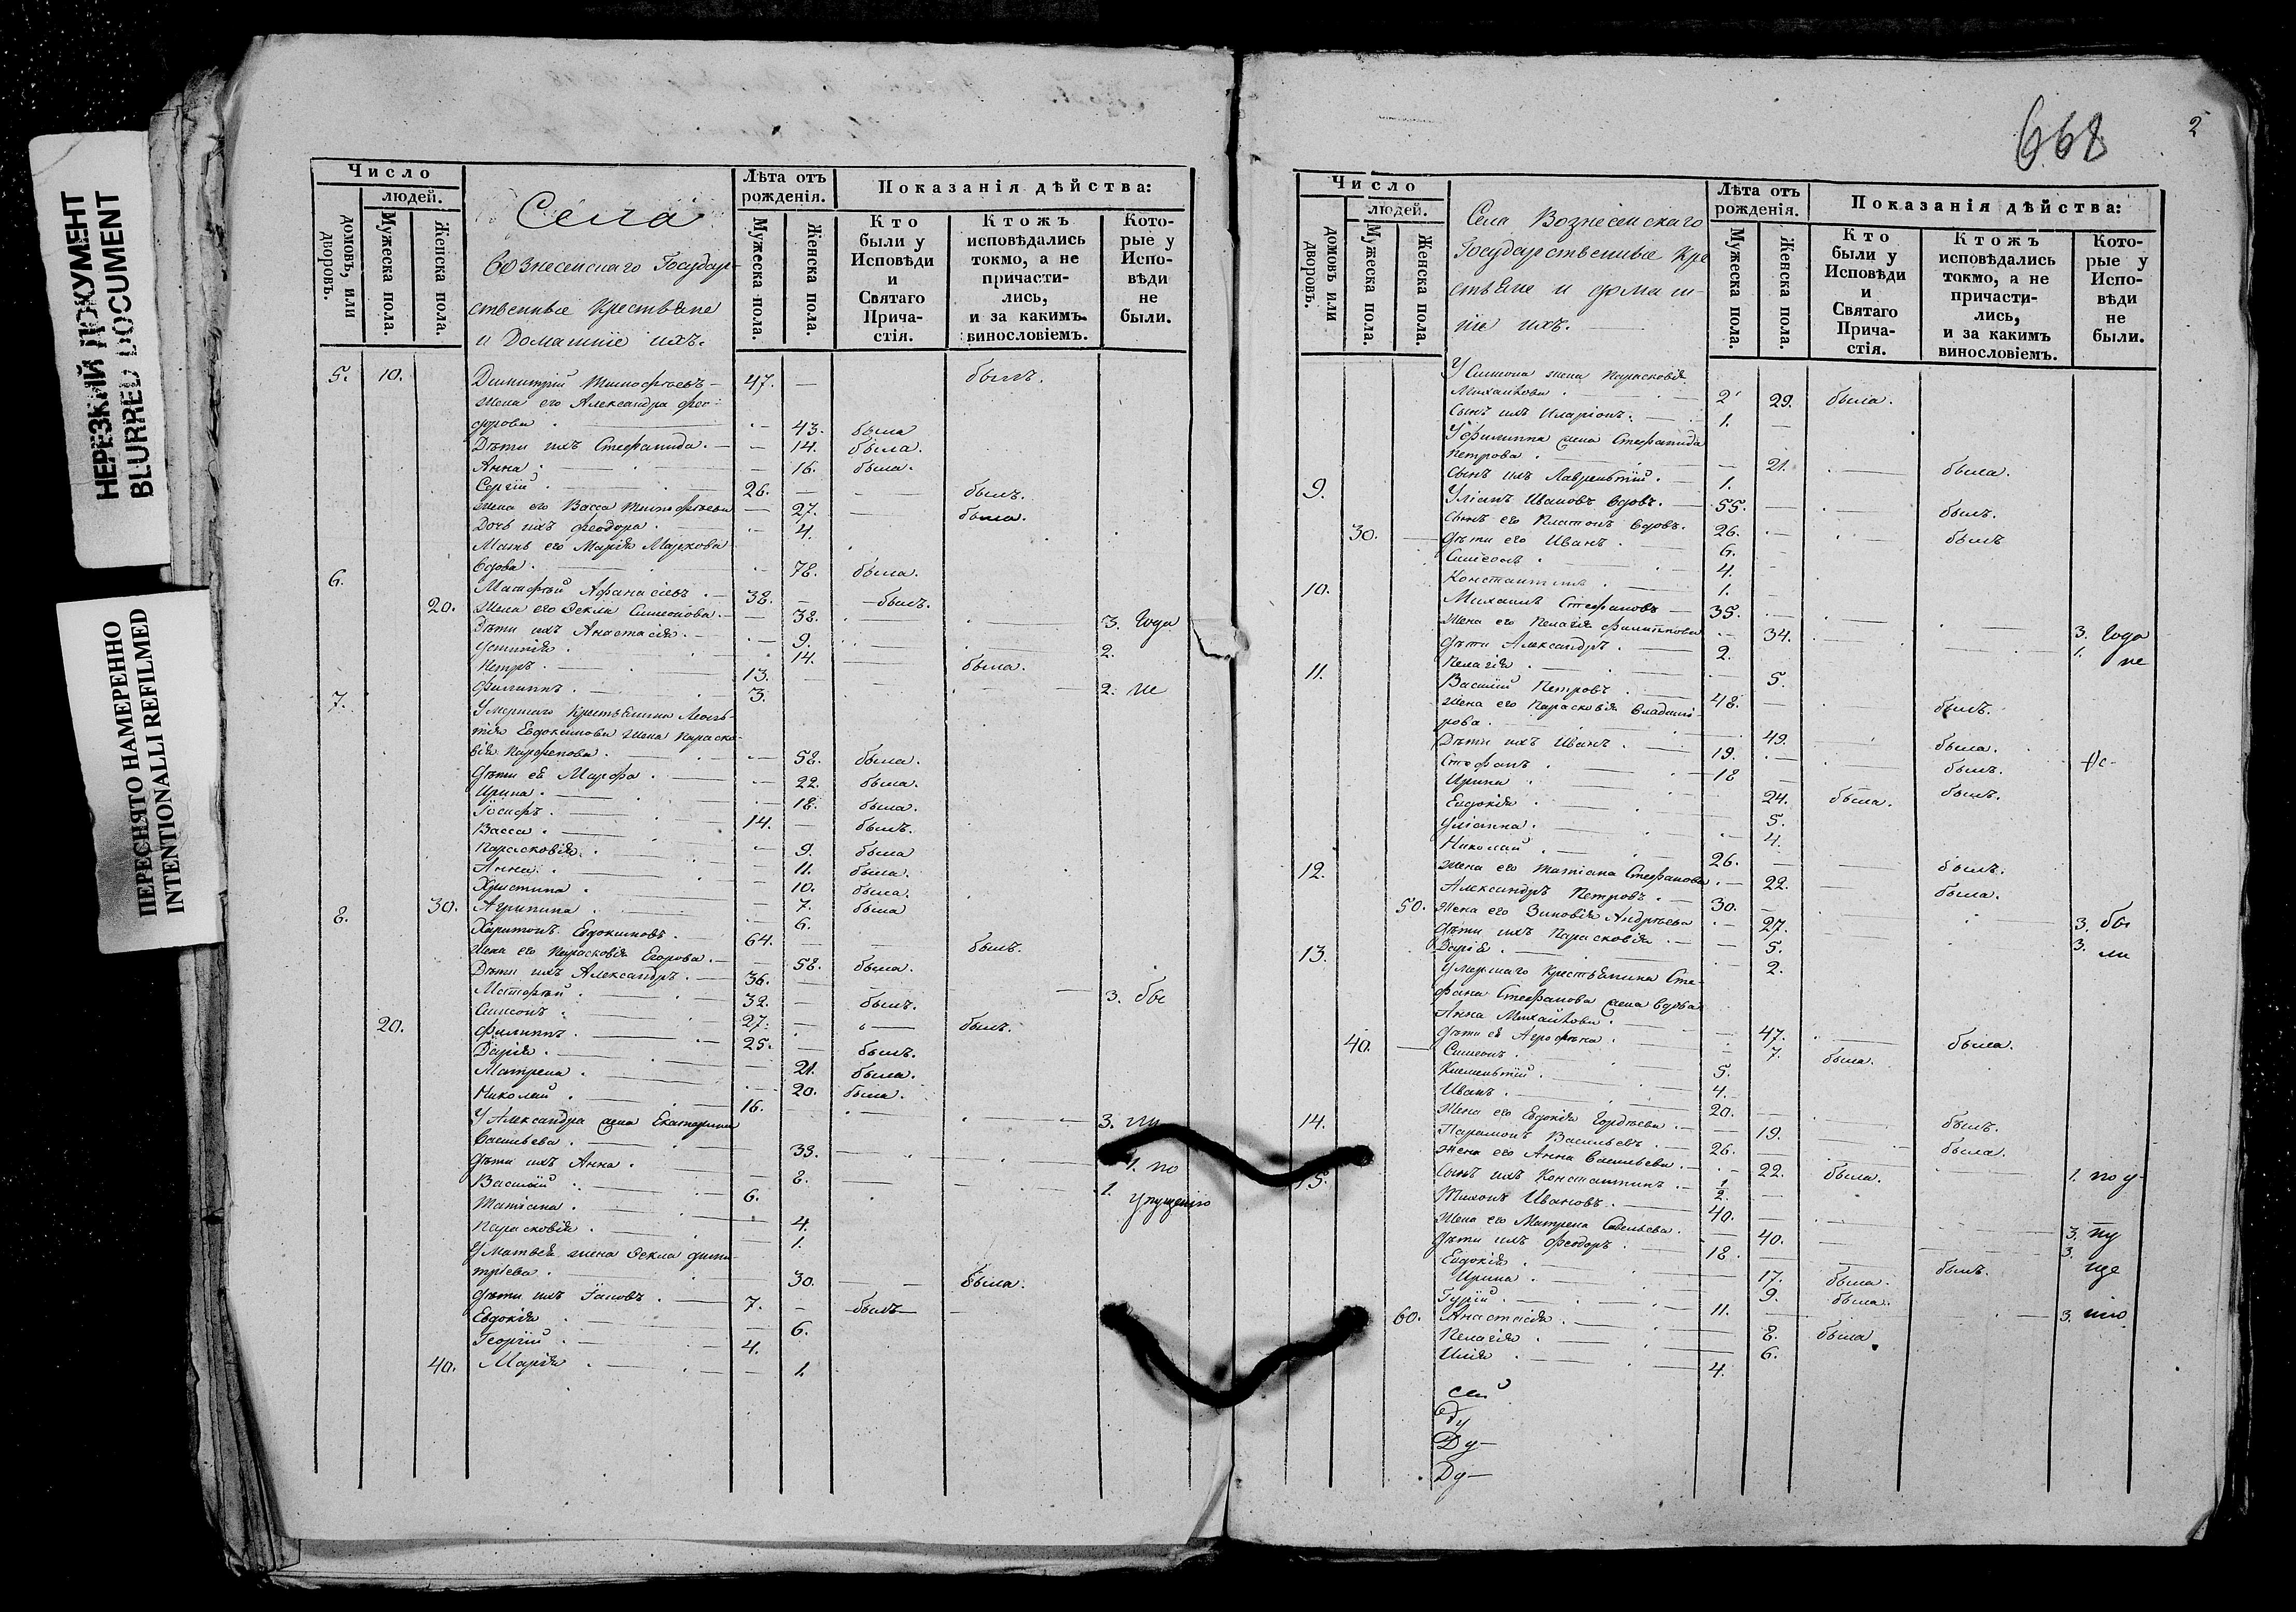 НЕРЕЗКИЙ ДОКУМЕНТ
BLURRED DOCUMENT
ПЕРЕСНЯТО НАМЕРЕННО
INTENTIONALLI REFILMED
Число
людей.
домовъ, или дворовъ.
Мужеска пола.
Женска пола.
Села
Вознесенскаго Государ-
ственные Крестьяне
и Домашніе ихъ.
Лѣта отъ рожденія.
Мужеска пола.
Женска пола.
Показанія дѣйства:
Кто были у Исповѣди и Святаго Прича-стія.
Ктожъ исповѣдались токмо, а не причасти-лись, и за какимъ винословіемъ.
Кото-рые у Испо-вѣди не были.
5. 10. Димитрій Тимофѣевъ 47. — былъ.
жена его Александра Фео-
дорова 43. была
Дѣти ихъ Стефанида 14. была.
Анна 16. была.
Сергій 26. былъ.
жена его Васса Тимофѣева 27. была.
Дочь ихъ Феодора 4.
Мать его Марія Маркова
вдова 78. была.
6. Матфей Афанасіевъ 38. былъ.
20. Жена его Фекла Симеонова 38. 3. года
Дѣти ихъ Анастасія 9.
Устинія 14. 2.
Петръ 13. была.
Филиппъ 3. 2. не
7. Умершаго крестьянина Леонъ-
тія Евдокимова жена Параско-
вія Парфенова 58. была.
Дѣти её Марфа 22. была.
Ирина 18. была.
Іосифъ 14. былъ.
Васса 9. была
Парасковія 11. была.
Анна 10. была.
Христина 7. была
30. Агрипина 6.
8. Харитонъ Евдокимовъ 64. былъ.
жена его Парасковія Егорова 58. была.
Дѣти ихъ Александръ 36. 3. бы
Матфей 32. былъ.
Симеонъ 27. былъ.
20. Филиппъ 25. былъ.
Дарія 21. была.
Матрена 20. была.
Николай 16. 3. ли
У Александра жена Екатерина
Васильева 33. 1. по
Дѣти ихъ Анна 8. 1. упущенію
Василій 6.
Татіана 4.
Парасковія 1.
У Матвея жена Фекла Дими-
тріева 30. была.
Дѣти ихъ Іаковъ 7. былъ
Евдокія 6.
Георгій 4.
40. Марія 1.
668
2
Число
людей.
домовъ или дворовъ.
Мужеска пола.
Женска пола.
Села Вознесенскаго
Государственные Кре
стьяне и домаш-
ніе ихъ.
Лѣта отъ рожденія.
Мужеска пола.
Женска пола.
Показанія дѣйства:
Кто были у Исповѣди и Святаго Прича-стія.
Ктожъ исповѣдались токмо, а не причасти-лись, и за какимъ винословіемъ.
Кото-рые у Испо-вѣди не были.
У Симеона жена Парасковія
Михайлова 29. была.
Сынъ ихъ Иларіонъ 1.
У Филиппа жена Стефанида
Петрова 21. была.
Сынъ ихъ Лаврентій 1.
9. Уліанъ Ивановъ вдовъ 55. былъ.
Сынъ его Платонъ вдовъ 26. былъ
30. Дѣти его Иванъ 6.
Симеонъ 4.
Константинъ 1.
10. Михаилъ Стефановъ 35. 3. года
жена его Пелагія Филиппова 34. 1. не
Дѣти Александръ 2.
Пелагія 5.
11. Василій Петровъ 48. былъ.
Жена его Парасковія Владими-
рова 49. была.
Дѣти ихъ Иванъ 19. былъ.
Стефанъ 18 былъ.
Ирина 24. была.
Евдокія 5.
Уліанна 4.
Николай 26. былъ.
жена его Татіана Стефанова 22. была.
12. Александръ Петровъ 30. 3. бы
50. Жена его Зиновія Андрѣева 27. 3. ли
Дѣти ихъ Парасковія 5.
Дарія 2.
13. Умершаго Крестьянина Сте-
фана Стефанова жена вдова
Анна Михайлова 47. была.
Дѣти её Агрофѣна 7. была.
40. Симеонъ 5.
Климентій 4.
Иванъ 20. былъ.
Жена его Евдокія Гордѣева 19. была.
14. Парамонъ Васильевъ 26. 1. по у-
жена его Анна Васильева 22. была.
Сынъ ихъ Константинъ 1/2.
15. Тихонъ Ивановъ 40. 3. пу
Жена его Матрена Савельева 40. 3. ще
Дѣти ихъ Феодоръ 18. былъ.
Евдокія 17. была.
Ирина 9. была.
Гурій 11. 3. нію
60. Анастасія 8. была
Пелагія 6.
Илія 4.